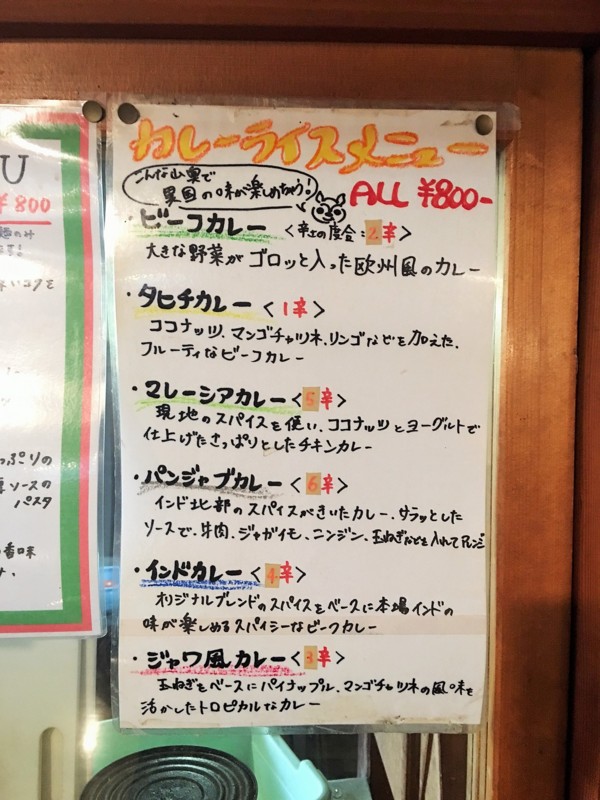 U
¥800
カレーライスメニュー
こんな山奥で
異国の味が楽しめちゃう!
ALL ¥800-
・ビーフカレー <辛さの度合:2辛>
大きな野菜がゴロッと入った欧州風のカレー
・タヒチカレー <1辛>
ココナッツ、マンゴチャツネ、リンゴなどを加えた、
フルーティなビーフカレー
・マレーシアカレー <5辛>
現地のスパイスを使い、ココナッツとヨーグルトで
仕上げたさっぱりとしたチキンカレー
・パンジャブカレー <6辛>
インド北部のスパイスがきいたカレー、サラッとした
ソースで、牛肉、ジャガイモ、ニンジン、玉ねぎなどを入れてアレンジ
・インドカレー <4辛>
オリジナルブレンドのスパイスをベースに本場インドの
味が楽しめるスパイシーなビーフカレー
・ジャワ風カレー <3辛>
玉ねぎをベースにパイナップル、マンゴチャツネの風味を
活かしたトロピカルなカレー
っぷりの
ソースの
パスタ
香味